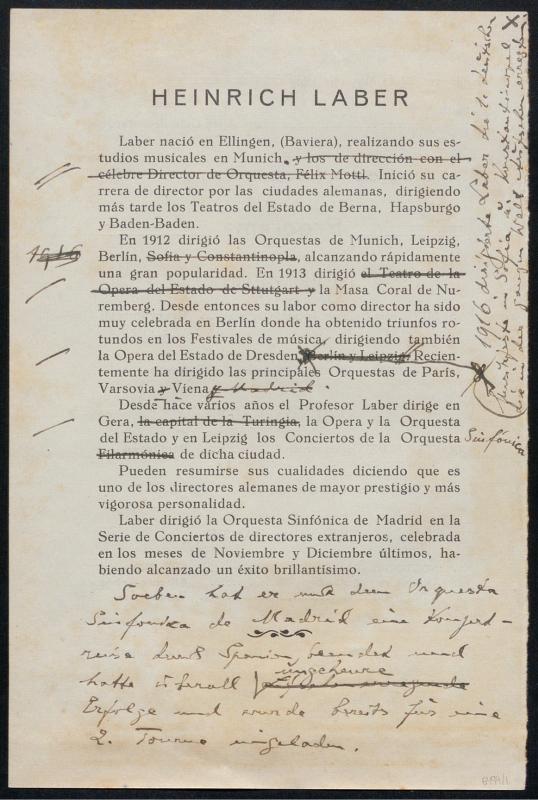 HEINRICH LABER
Laber nació en Ellingen, (Baviera), realizando sus es-
tudios musicales en Munich. y los de dirección con el
célebre Director de Orquesta, Félix Mottl. Inició su ca-
rrera de director por las ciudades alemanas, dirigiendo
más tarde los Teatros del Estado de Berna, Hapsburgo
y Baden-Baden.
En 1912 dirigió las Orquestas de Munich, Leipzig,
1916
Berlín, Sofia y Constantinopla, alcanzando rápidamente
una gran popularidad. En 1913 dirigió el Teatro de la
Opera del Estado de Sttutgart y la Masa Coral de Nu-
remberg. Desde entonces su labor como director ha sido
muy celebrada en Berlín donde ha obtenido triunfos ro-
tundos en los Festivales de música, dirigiendo también
la Opera del Estado de Dresden, Berlín y Leipzig, Recien-
temente ha dirigido las principales Orquestas de París,
Varsovia y Viena y Madrid.
Desde hace varios años el Profesor Laber dirige en
Gera, la capital de la Turingia, la Opera y la Orquesta
del Estado y en Leipzig los Conciertos de la Orquesta Sinfónica
Filarmónica de dicha ciudad.
Pueden resumirse sus cualidades diciendo que es
uno de los directores alemanes de mayor prestigio y más
vigorosa personalidad.
Laber dirigió la Orquesta Sinfónica de Madrid en la
Serie de Conciertos de directores extranjeros, celebrada
en los meses de Noviembre y Diciembre últimos, ha-
biendo alcanzado un éxito brillantísimo.
Soeben hat er mit dem Orquesta
Sinfonica de Madrid eine Konzert-
reise durch Spanien beendet und
ungeheure
hatte überall
Erfolge und wurde bereits für eine
2. Tournee eingeladen.
X 1916 dirigierte Laber die deutschen
in Sofia u. Konstantinopel X
die in der ganzen Welt